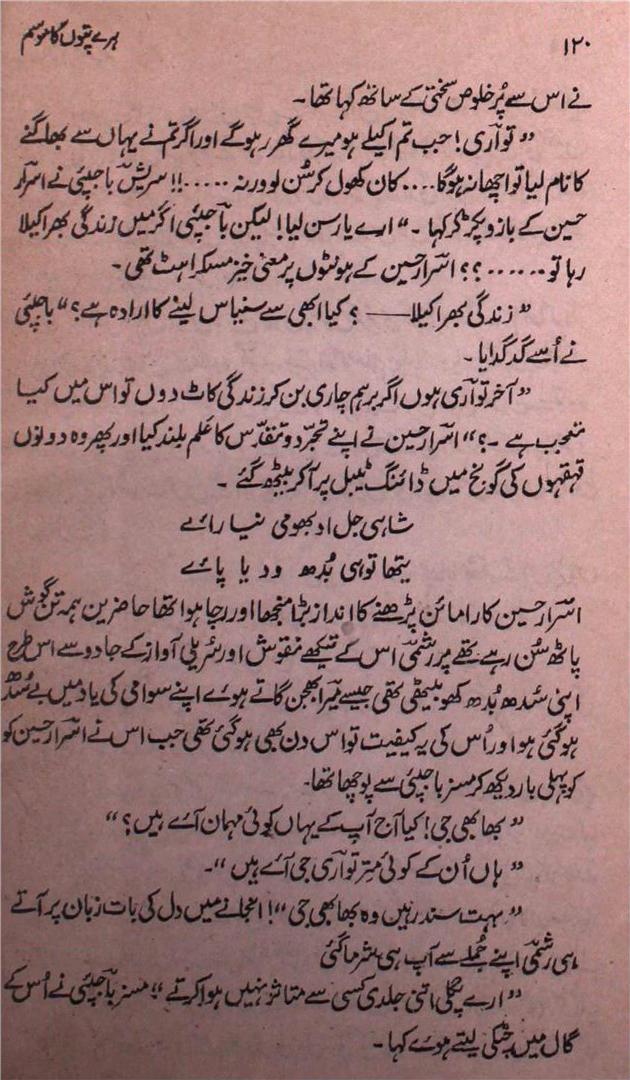 ہرے پتوں کا موسم ۱۲۰
نے اس سے پُر خلوص سختی کے ساتھ کہا تھا۔
”تواری! جب تم اکیلے ہو میرے گھر رہو گے اور اگر تم نے یہاں سے بھاگنے
کا نام لیا تو اچھا نہ ہوگا.... کان کھول کر سُن لو ورنہ .....!! سریش باجپئی نے اسرار
حسین کے بازو پکڑ کر کہا ۔“ ارے یار سن لیا! لیکن باجپئی اگر میں زندگی بھر اکیلا
رہا تو ......؟؟ اسرار حسین کے ہونٹوں پر معنی خیز مسکراہٹ تھی۔
”زندگی بھر اکیلا —— ؟ کیا ابھی سے سنیاس لینے کا ارادہ ہے؟“ باجپئی
نے اُسے گدگدایا۔
”آخر تواری ہوں اگر برہم چاری بن کر زندگی کاٹ دوں تو اس میں کیا
تعجب ہے ۔؟“ اسرار حسین نے اپنے تجرّد و تقدّس کا عَلم بلند کیا اور پھر وہ دونوں
قہقہوں کی گونج میں ڈائننگ ٹیبل پر آکر بیٹھ گئے ۔
شاہی جل اد بھومی نیا رائے
یتھا تو اہی بُدھ ودیا پائے
اسرار حسین کا رامائن پڑھنے کا انداز بڑا منجھا اور رچا ہوا تھا حاضرین ہمہ تن گوش
پاٹھ سُن رہے تھے پر رشمی اس کے تیکھے نقوش اور سُریلی آواز کے جادو سے اس طرح
اپنی سُدھ بُدھ کھو بیٹھی تھی جیسے میرا بھجن گاتے ہوئے اپنے سوامی کی یاد میں بے سُدھ
ہو گئی ہو اور اُس کی یہ کیفیت تو اس دن بھی ہو گئی تھی جب اس نے اسرار حسین کو
کو پہلی بار دیکھ کر مسز باجپئی سے پوچھا تھا۔
”بھابھی جی! کیا آج آپ کے یہاں کوئی مہمان آئے ہیں؟“
”ہاں اُن کے کوئی مِتر تواری جی آئے ہیں“۔
”بہت سندر ہیں وہ بھابھی جی“! انجانے میں دل کی بات زبان پر آتے
ہی رشمی اپنے جُملے سے آپ ہی شرما گئی
”ارے پگلی اتنی جلدی کسی سے متاثر نہیں ہوا کرتے“۔ مسز باجپئی نے اُس کے
گال میں چٹکی لیتے ہوئے کہا۔